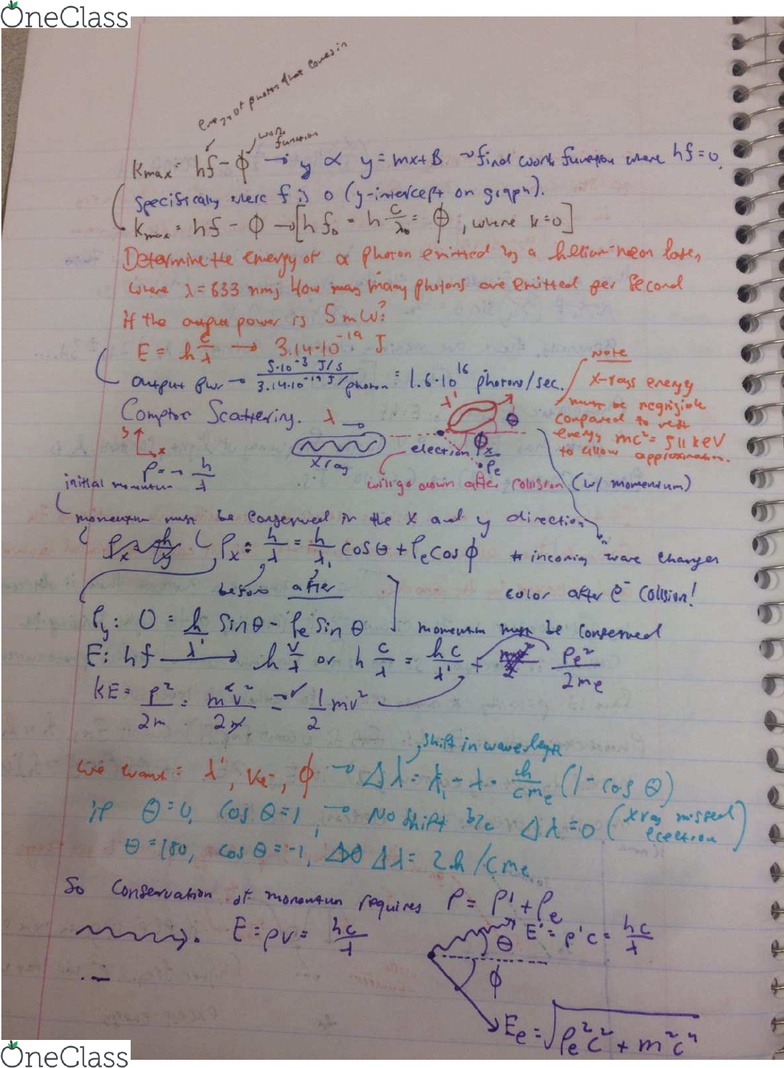 OneClass
energy of photon that comes in
work function
Kmax = hf - ϕ → y ∝ y = mx+B → find work function where hf=0,
specifically where f is 0 (y-intercept on graph).
Kmax = hf - ϕ → [hf₀ = h c/λ₀ = ϕ, where k=0]
Determine the energy of a photon emitted by a helium-neon laser,
where λ = 633 nm; How many photons are emitted per second
if the output power is 5 mW?
E = h c/λ → 3.14·10⁻¹⁹ J
output pwr → 5·10⁻³ J/s / 3.14·10⁻¹⁹ J/photon = 1.6·10¹⁶ photons/sec.
note
X-rays energy
must be negligible
compared to rest
energy mc² = 511 keV
to allow approximation.
Compton Scattering. λ → λ' θ
y x X ray electron ϕ x Pe
initial momentum P = → h/λ
will go down after collision (w/ momentum)
momentum must be conserved in the x and y direction
Px: h/λ = h/λ' cos θ + Pe cos ϕ
before after
# incoming wave changes
color after e⁻ collision!
Py: 0 = h/λ' sin θ - Pe sin θ momentum must be conserved
E: hf → h v/λ or h c/λ = hc/λ' + Pe²/2me
KE = P²/2m = m²v²/2m = ✓ 1/2 mv²
shift in wavelength
we want: λ', Ve-, ϕ → Δλ = λ' - λ = h/cme (1 - cos θ)
if θ=0, cos θ=1, → No shift b/c Δλ=0 (Xray missed electron)
θ=180, cos θ=-1, Δλ = 2h/cme
So conservation of momentum requires P = P' + Pe
E = pv = hc/λ
E' = p'c = hc/λ
θ
ϕ
Ee = √Pe²c² + m²c⁴
OneClass